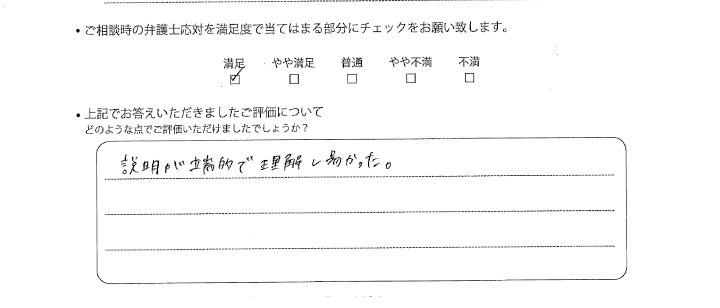 ・ご相談時の弁護士応対を満足度で当てはまる部分にチェックをお願い致します。
満足 やや満足 普通 やや不満 不満
☑ ☐ ☐ ☐ ☐
・上記でお答えいただきましたご評価について
どのような点でご評価いただけましたでしょうか？
説明が端的で理解し易かった。